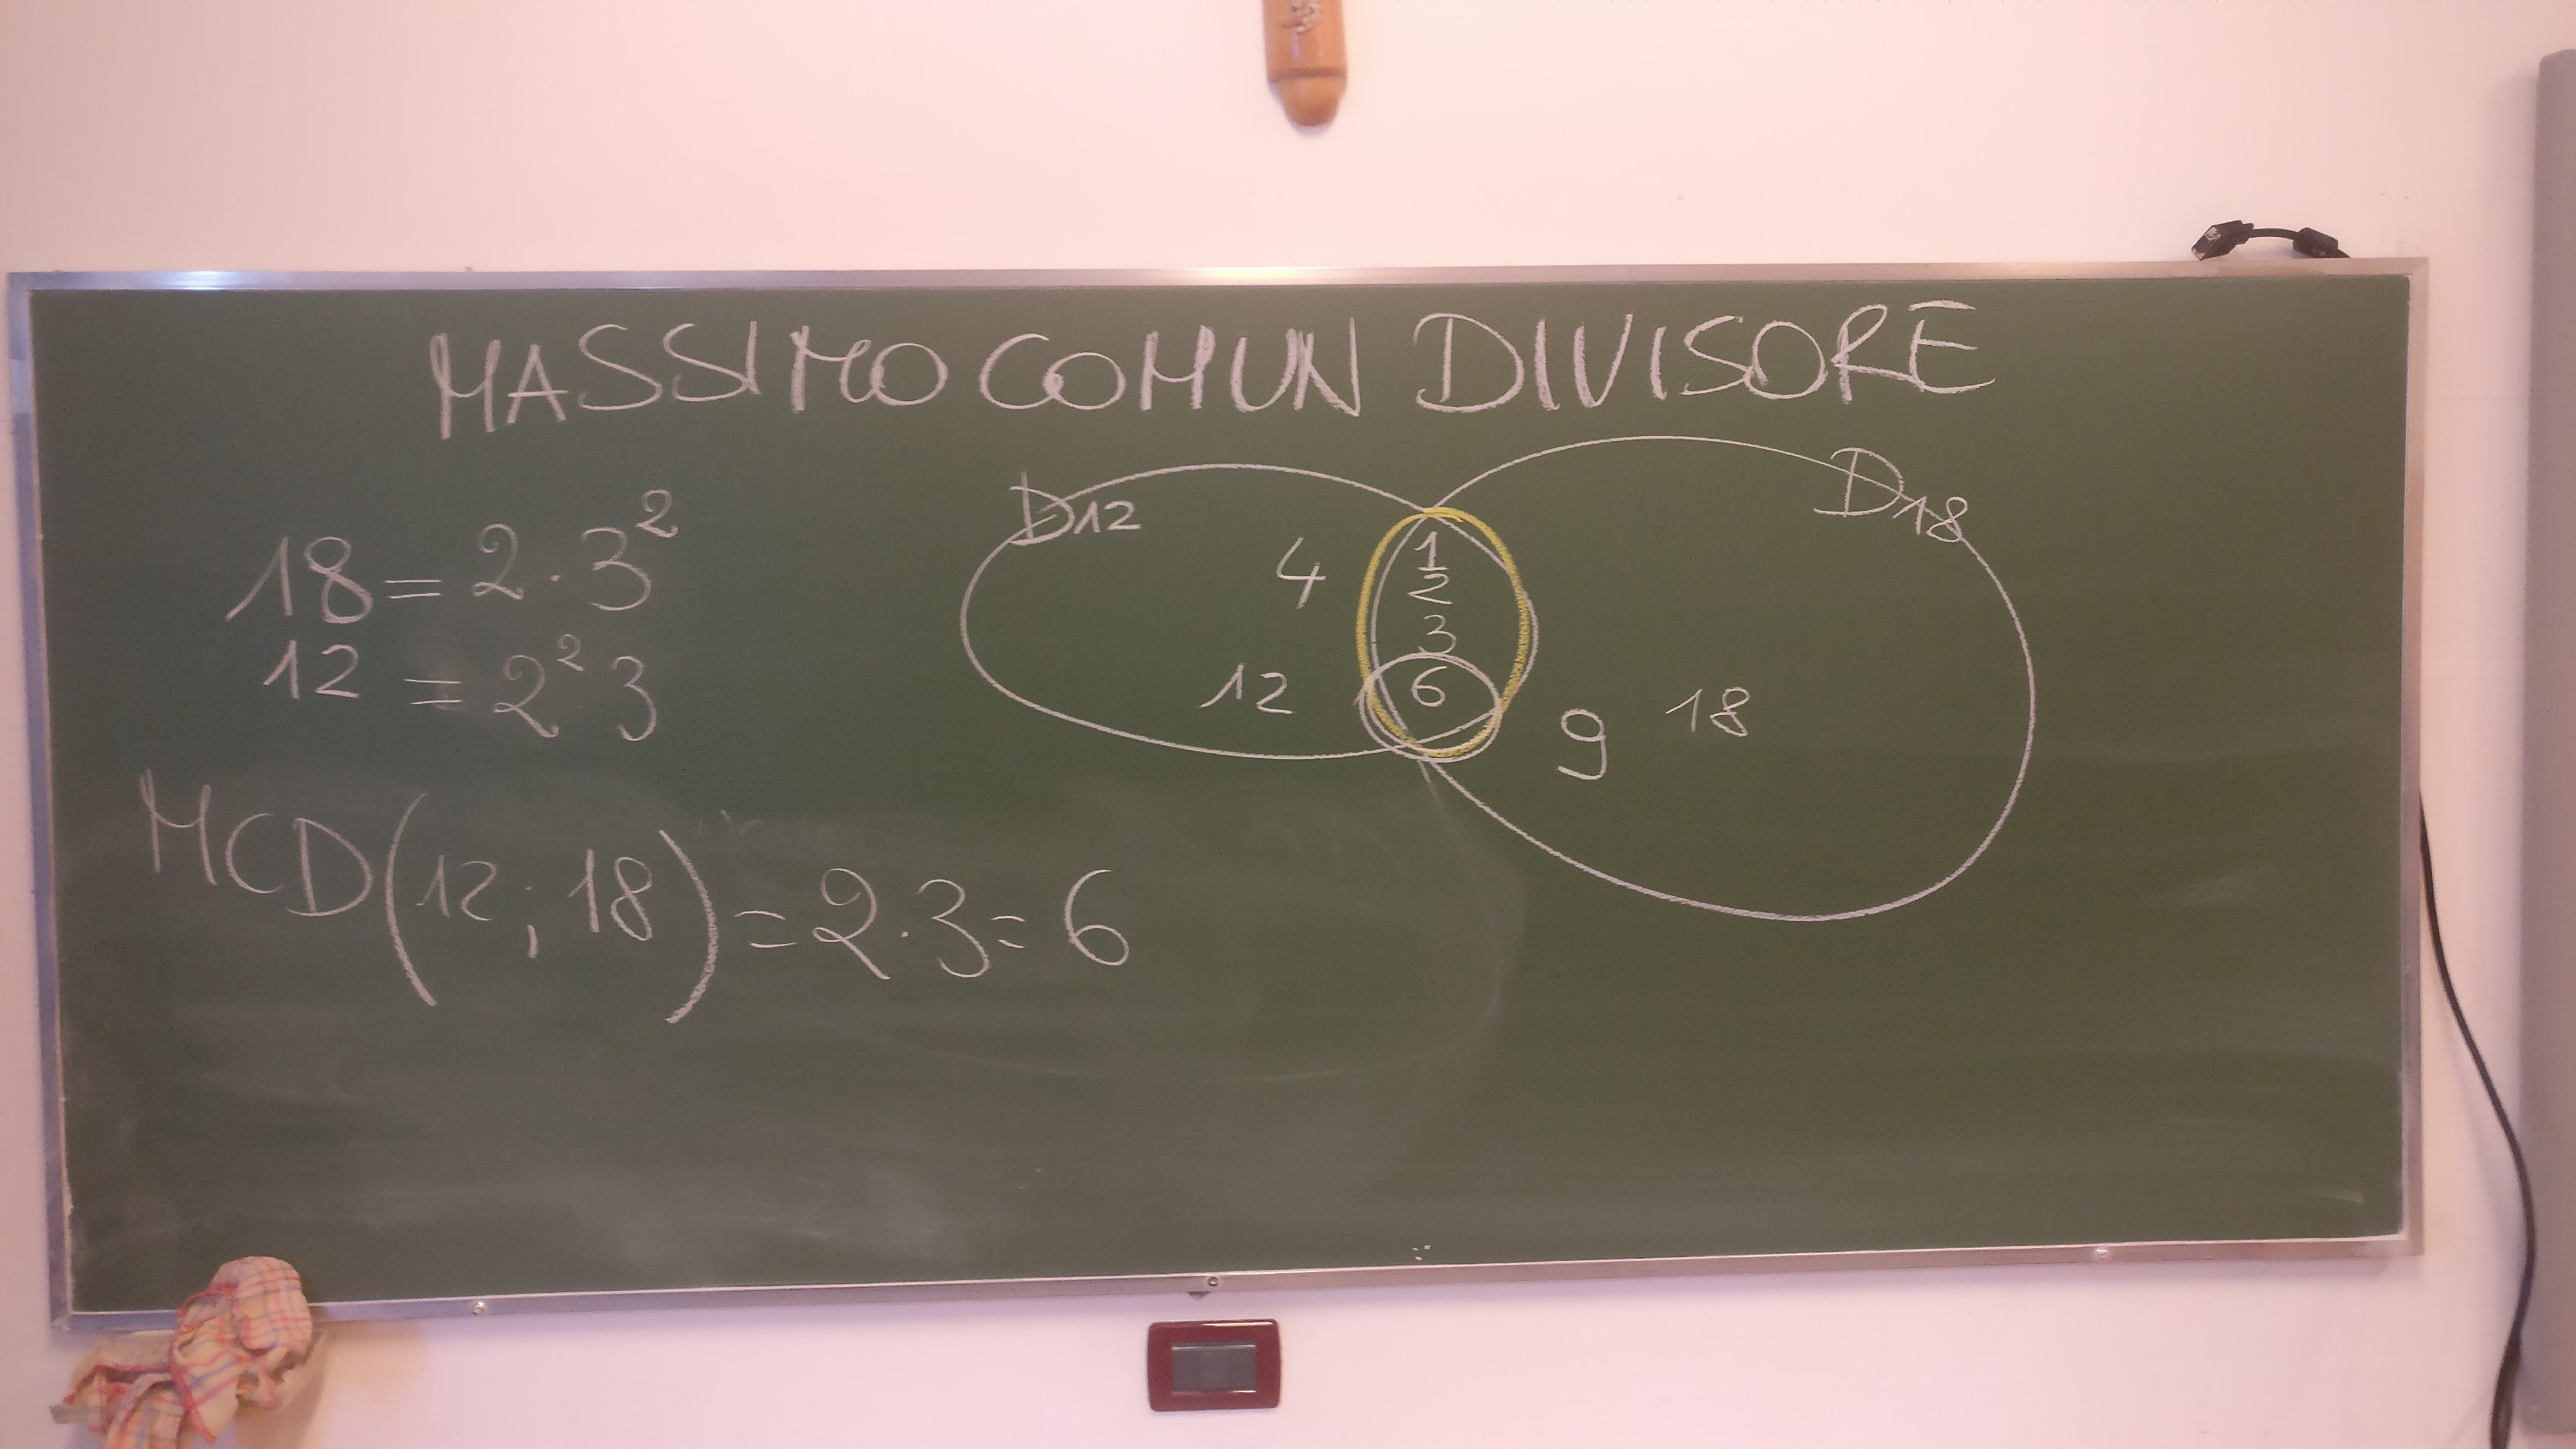 MASSIMO COMUN DIVISORE
18 = 2 · 3²
12 = 2² · 3
MCD(12; 18) = 2 · 3 = 6
D12
4
12
1
2
3
6
D18
9 18